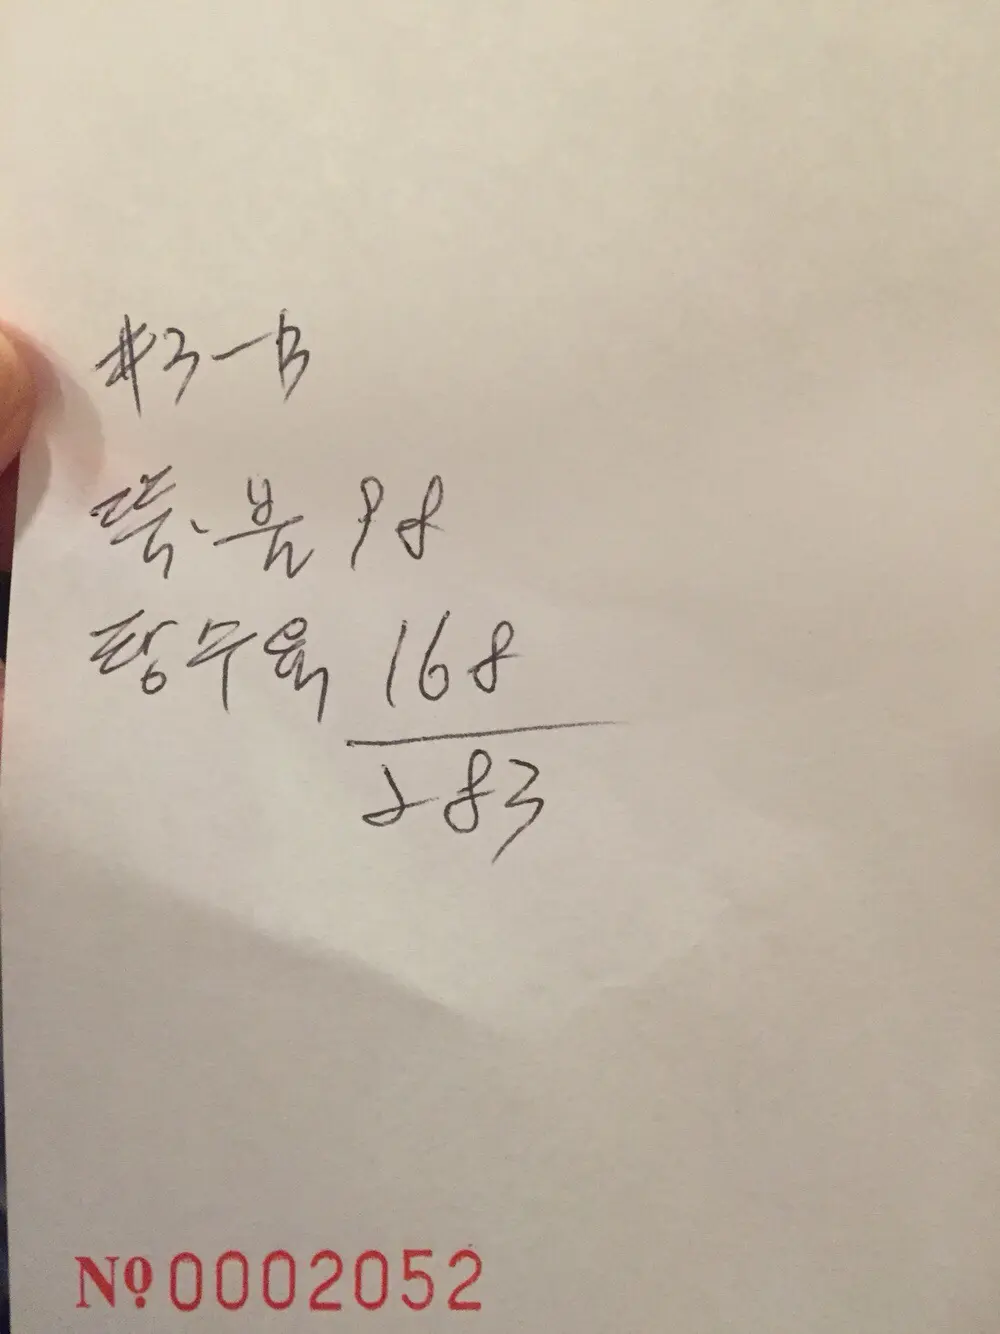 #3-B
쯕·볶 98
탕수육 168
283
No 0002052